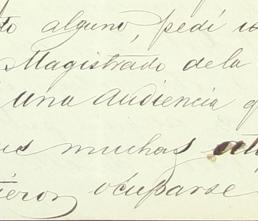 to alguno, pedí
Magistrado de la
una audiencia
muchas
ocuparse